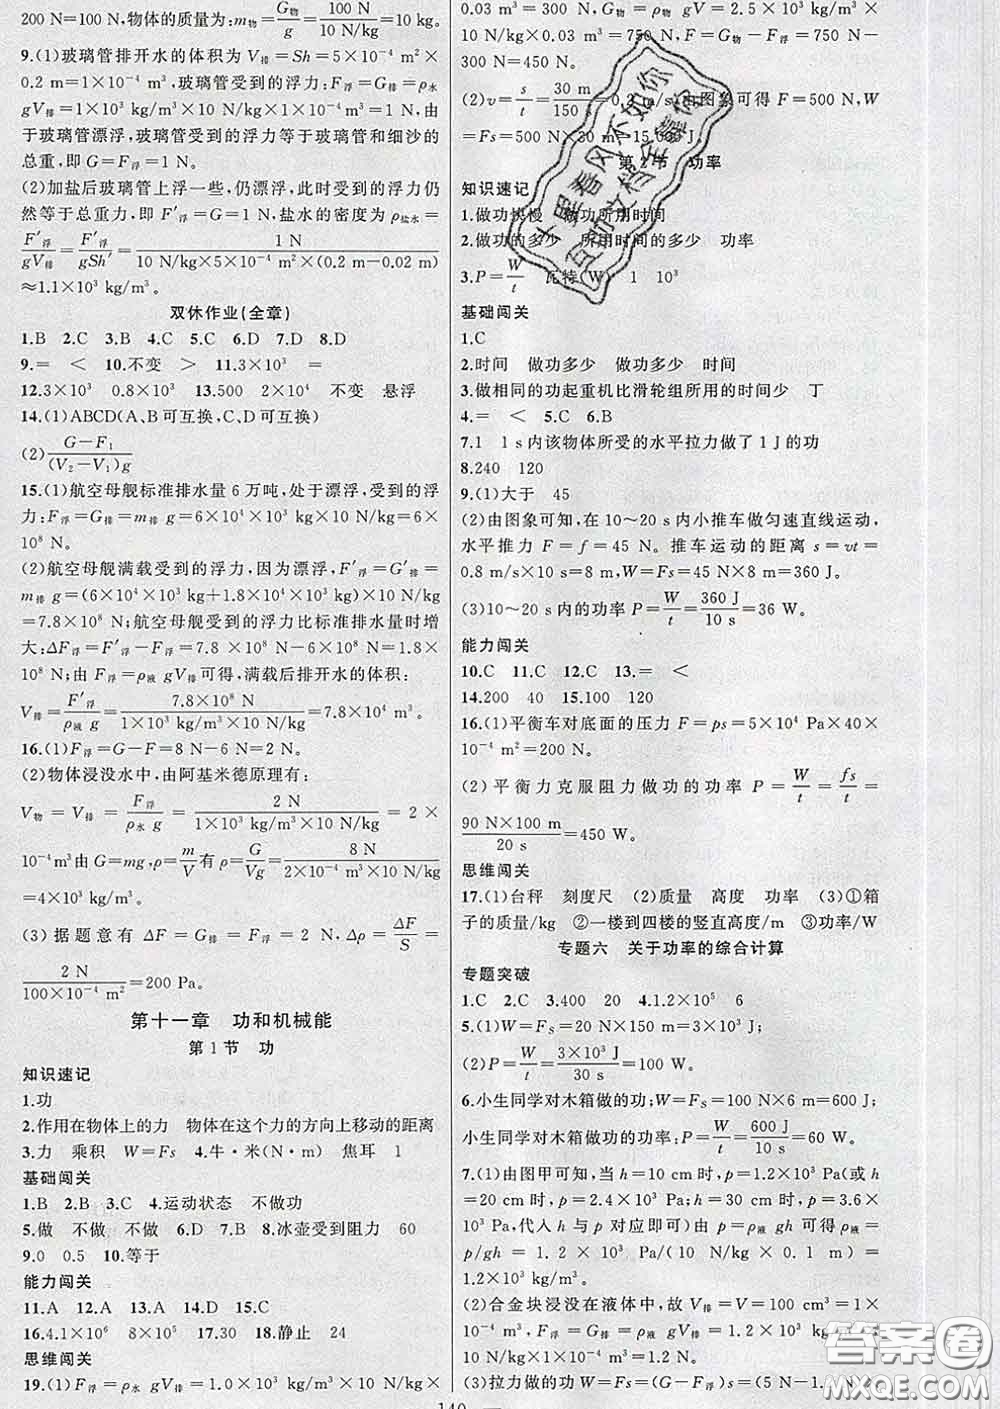 200 N=100 N,物体的质量为:m物=G物/g=100 N/10 N/kg=10 kg。
9.(1)玻璃管排开水的体积为 V排=Sh=5×10⁻⁴ m²×
0.2 m=1×10⁻⁴ m³,玻璃管受到的浮力:F浮=G排=ρ水
gV排=1×10³ kg/m³×10 N/kg×1×10⁻⁴ m³=1 N,由
于玻璃管漂浮,玻璃管受到的浮力等于玻璃管和细沙的
总重,即 G=F浮=1 N。
(2)加盐后玻璃管上浮一些,仍漂浮,此时受到的浮力仍
然等于总重力,即 F′浮=G=1 N,盐水的密度为 ρ盐水=
F′浮/gV排=F′浮/gSh′=1 N/10 N/kg×5×10⁻⁴ m²×(0.2 m-0.02 m)
≈1.1×10³ kg/m³。
双休作业(全章)
1.B 2.C 3.B 4.C 5.C 6.D 7.D 8.D
9.= < 10.不变 > 11.3×10³ =
12.3×10³ 0.8×10³ 13.500 2×10⁴ 不变 悬浮
14.(1)ABCD(A、B 可互换,C、D 可互换)
(2)G-F₁/(V₂-V₁)g
15.(1)航空母舰标准排水量 6 万吨,处于漂浮,受到的浮
力:F浮=G排=m排 g=6×10⁴×10³ kg×10 N/kg=6×
10⁸ N。
(2)航空母舰满载受到的浮力,因为漂浮,F′浮=G′排=
m排 g=(6×10⁴×10³ kg+1.8×10⁷ kg)×10 N/kg
=7.8×10⁸ N;航空母舰受到的浮力比标准排水量时增
大:ΔF浮=F′浮-F浮=7.8 ×10⁸ N-6×10⁸ N=1.8×
10⁸ N;由 F浮=ρ液 gV排可得,满载后排开水的体积:
V排=F′浮/ρ液 g=7.8×10⁸ N/1×10³ kg/m³×10 N/kg=7.8×10⁴ m³。
16.(1)F浮=G-F=8 N-6 N=2 N。
(2)物体浸没水中,由阿基米德原理有:
V物=V排=F浮/ρ水 g=2 N/1×10³ kg/m³×10 N/kg=2×
10⁻⁴m³由 G=mg,ρ=m/V有 ρ=G/Vg=8 N/2×10⁻⁴ m³×10 N/kg
=4×10³ kg/m³。
(3) 据题意有 ΔF=G排=F浮=2 N,Δρ=ΔF/S=
2 N/100×10⁻⁴ m²=200 Pa。
第十一章 功和机械能
第 1 节 功
知识速记
1.功
2.作用在物体上的力 物体在这个力的方向上移动的距离
3.力 乘积 W=Fs 4.牛·米(N·m) 焦耳 1
基础闯关
1.B 2.B 3.C 4.运动状态 不做功
5.做 不做 不做 6.B 7.B 8.冰壶受到阻力 60
9.0 0.5 10.等于
能力闯关
11.A 12.A 13.A 14.D 15.C
16.4.1×10⁶ 8×10⁵ 17.30 18.静止 24
思维闯关
19.(1)F浮=ρ水 gV排=1.0×10³ kg/m³×10 N/kg×
0.03 m³=300 N,G物=ρ物 gV=2.5×10³ kg/m³×
10 N/kg×0.03 m³=750 N,F=G物-F浮=750 N-
300 N=450 N。
(2)v=s/t=30 m/150 s=0.2 m/s,由图象可得 F=500 N,W
=Fs=500 N×30 m=15 000 J
第 2 节 功率
知识速记
1.做功快慢 做功所用时间
2.做功的多少 所用时间的多少 功率
3.P=W/t 瓦特(W) 1 10³
基础闯关
1.C
2.时间 做功多少 做功多少 时间
3.做相同的功起重机比滑轮组所用的时间少 丁
4.= < 5.C 6.B
7.1 1 s 内该物体所受的水平拉力做了 1 J 的功
8.240 120
9.(1)大于 45
(2)由图象可知,在 10~20 s 内小推车做匀速直线运动,
水平推力 F=f=45 N。推车运动的距离 s=vt=
0.8 m/s×10 s=8 m,W=Fs=45 N×8 m=360 J。
(3)10~20 s 内的功率 P=W/t=360 J/10 s=36 W。
能力闯关
10.C 11.C 12.C 13.= <
14.200 40 15.100 120
16.(1)平衡车对底面的压力 F=ps=5×10⁴ Pa×40×
10⁻⁴ m²=200 N。
(2)平衡力克服阻力做功的功率 P=W/t=fs/t=
90 N×100 m/20 s=450 W。
思维闯关
17.(1)台秤 刻度尺 (2)质量 高度 功率 (3)①箱
子的质量/kg ②一楼到四楼的竖直高度/m ③功率/W
专题六 关于功率的综合计算
专题突破
1.C 2.C 3.400 20 4.1.2×10⁵ 6
5.(1)W=Fs=20 N×150 m=3×10³ J;
(2)P=W/t=3×10³ J/30 s=100 W。
6.小生同学对木箱做的功:W=Fs=100 N×6 m=600 J;
小生同学对木箱做功的功率:P=W/t=600 J/10 s=60 W。
7.(1)由图甲可知,当 h=10 cm 时,p=1.2×10³ Pa(或 h
=20 cm 时,p=2.4×10³ Pa;h=30 cm 时,p=3.6×
10³ Pa,代入 h 与 p 对应即可)由 p=ρ液 gh 可得 ρ液=
p/gh=1.2×10³ Pa/(10 N/kg×0.1 m)=
1.2×10³ kg/m³。
(2)合金块浸没在液体中,故 V排=V=100 cm³=1×
10⁻⁴ m³,F浮=G排=ρ液 gV排=1.2×10³ kg/m³×
10 N/kg×1×10⁻⁴ m³=1.2 N。
(3)拉力做的功 W=Fs=(G-F浮)s=(5 N-1.2
140
十里春风不如你
互助文档全靠你
答案圈
MXQE.COM